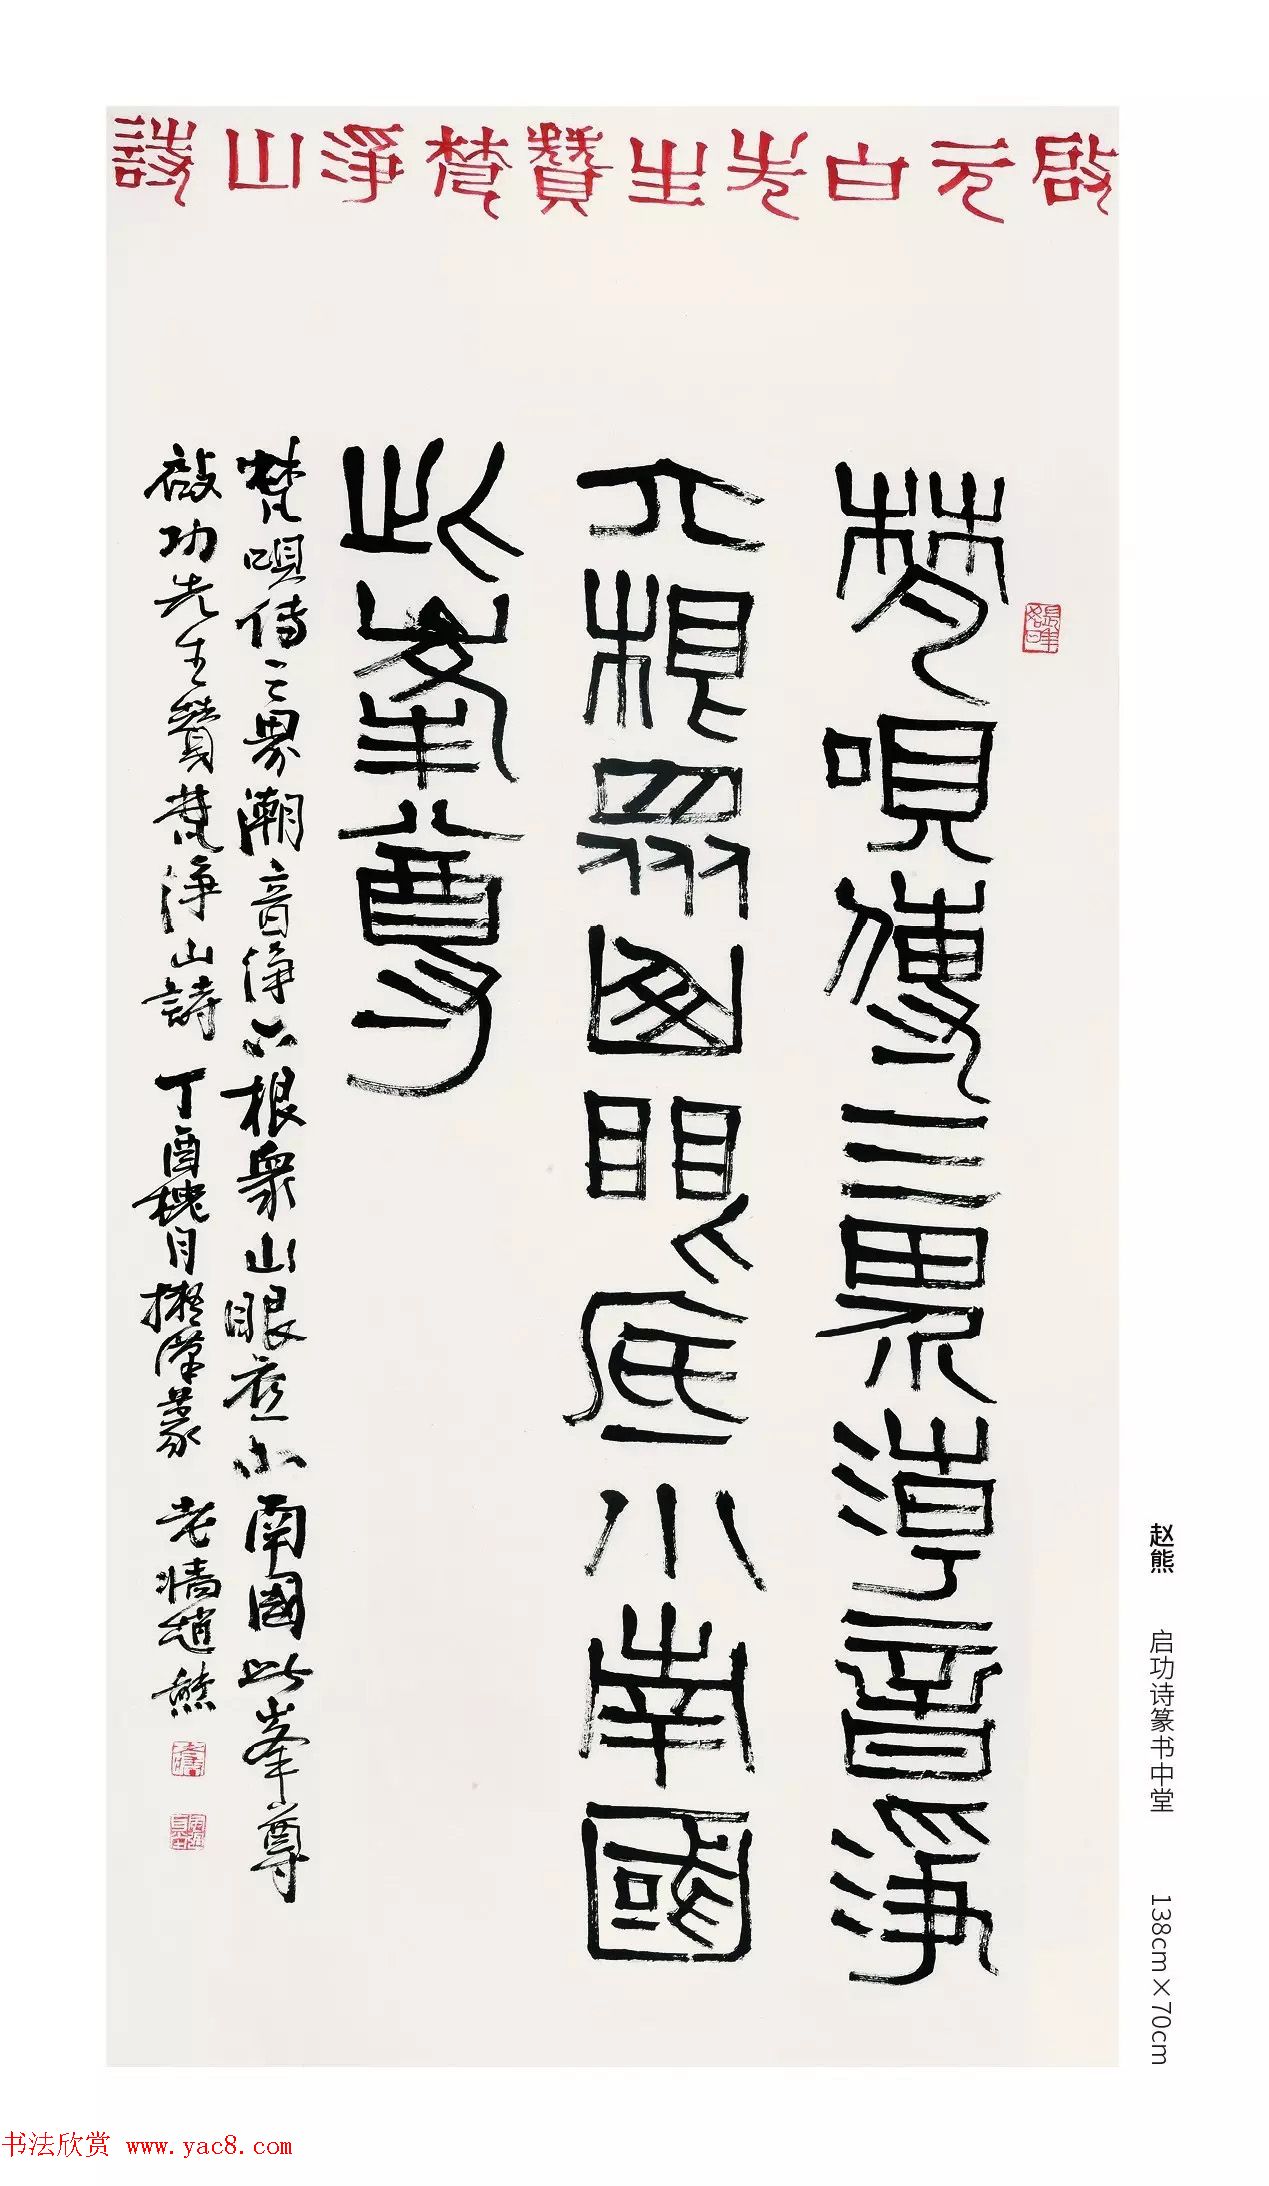 啟元白先生贊梵淨山詩
梵唄傳三界潮音淨
六根眾山眼底小南國
此峯尊
梵唄傳三界潮音淨六根眾山眼底小南國此峯尊
啟功先生贊梵淨山詩 丁酉槐月擬漢篆 老墻趙熊
赵熊 启功诗篆书中堂 138cm×70cm
书法欣赏 www.yac8.com